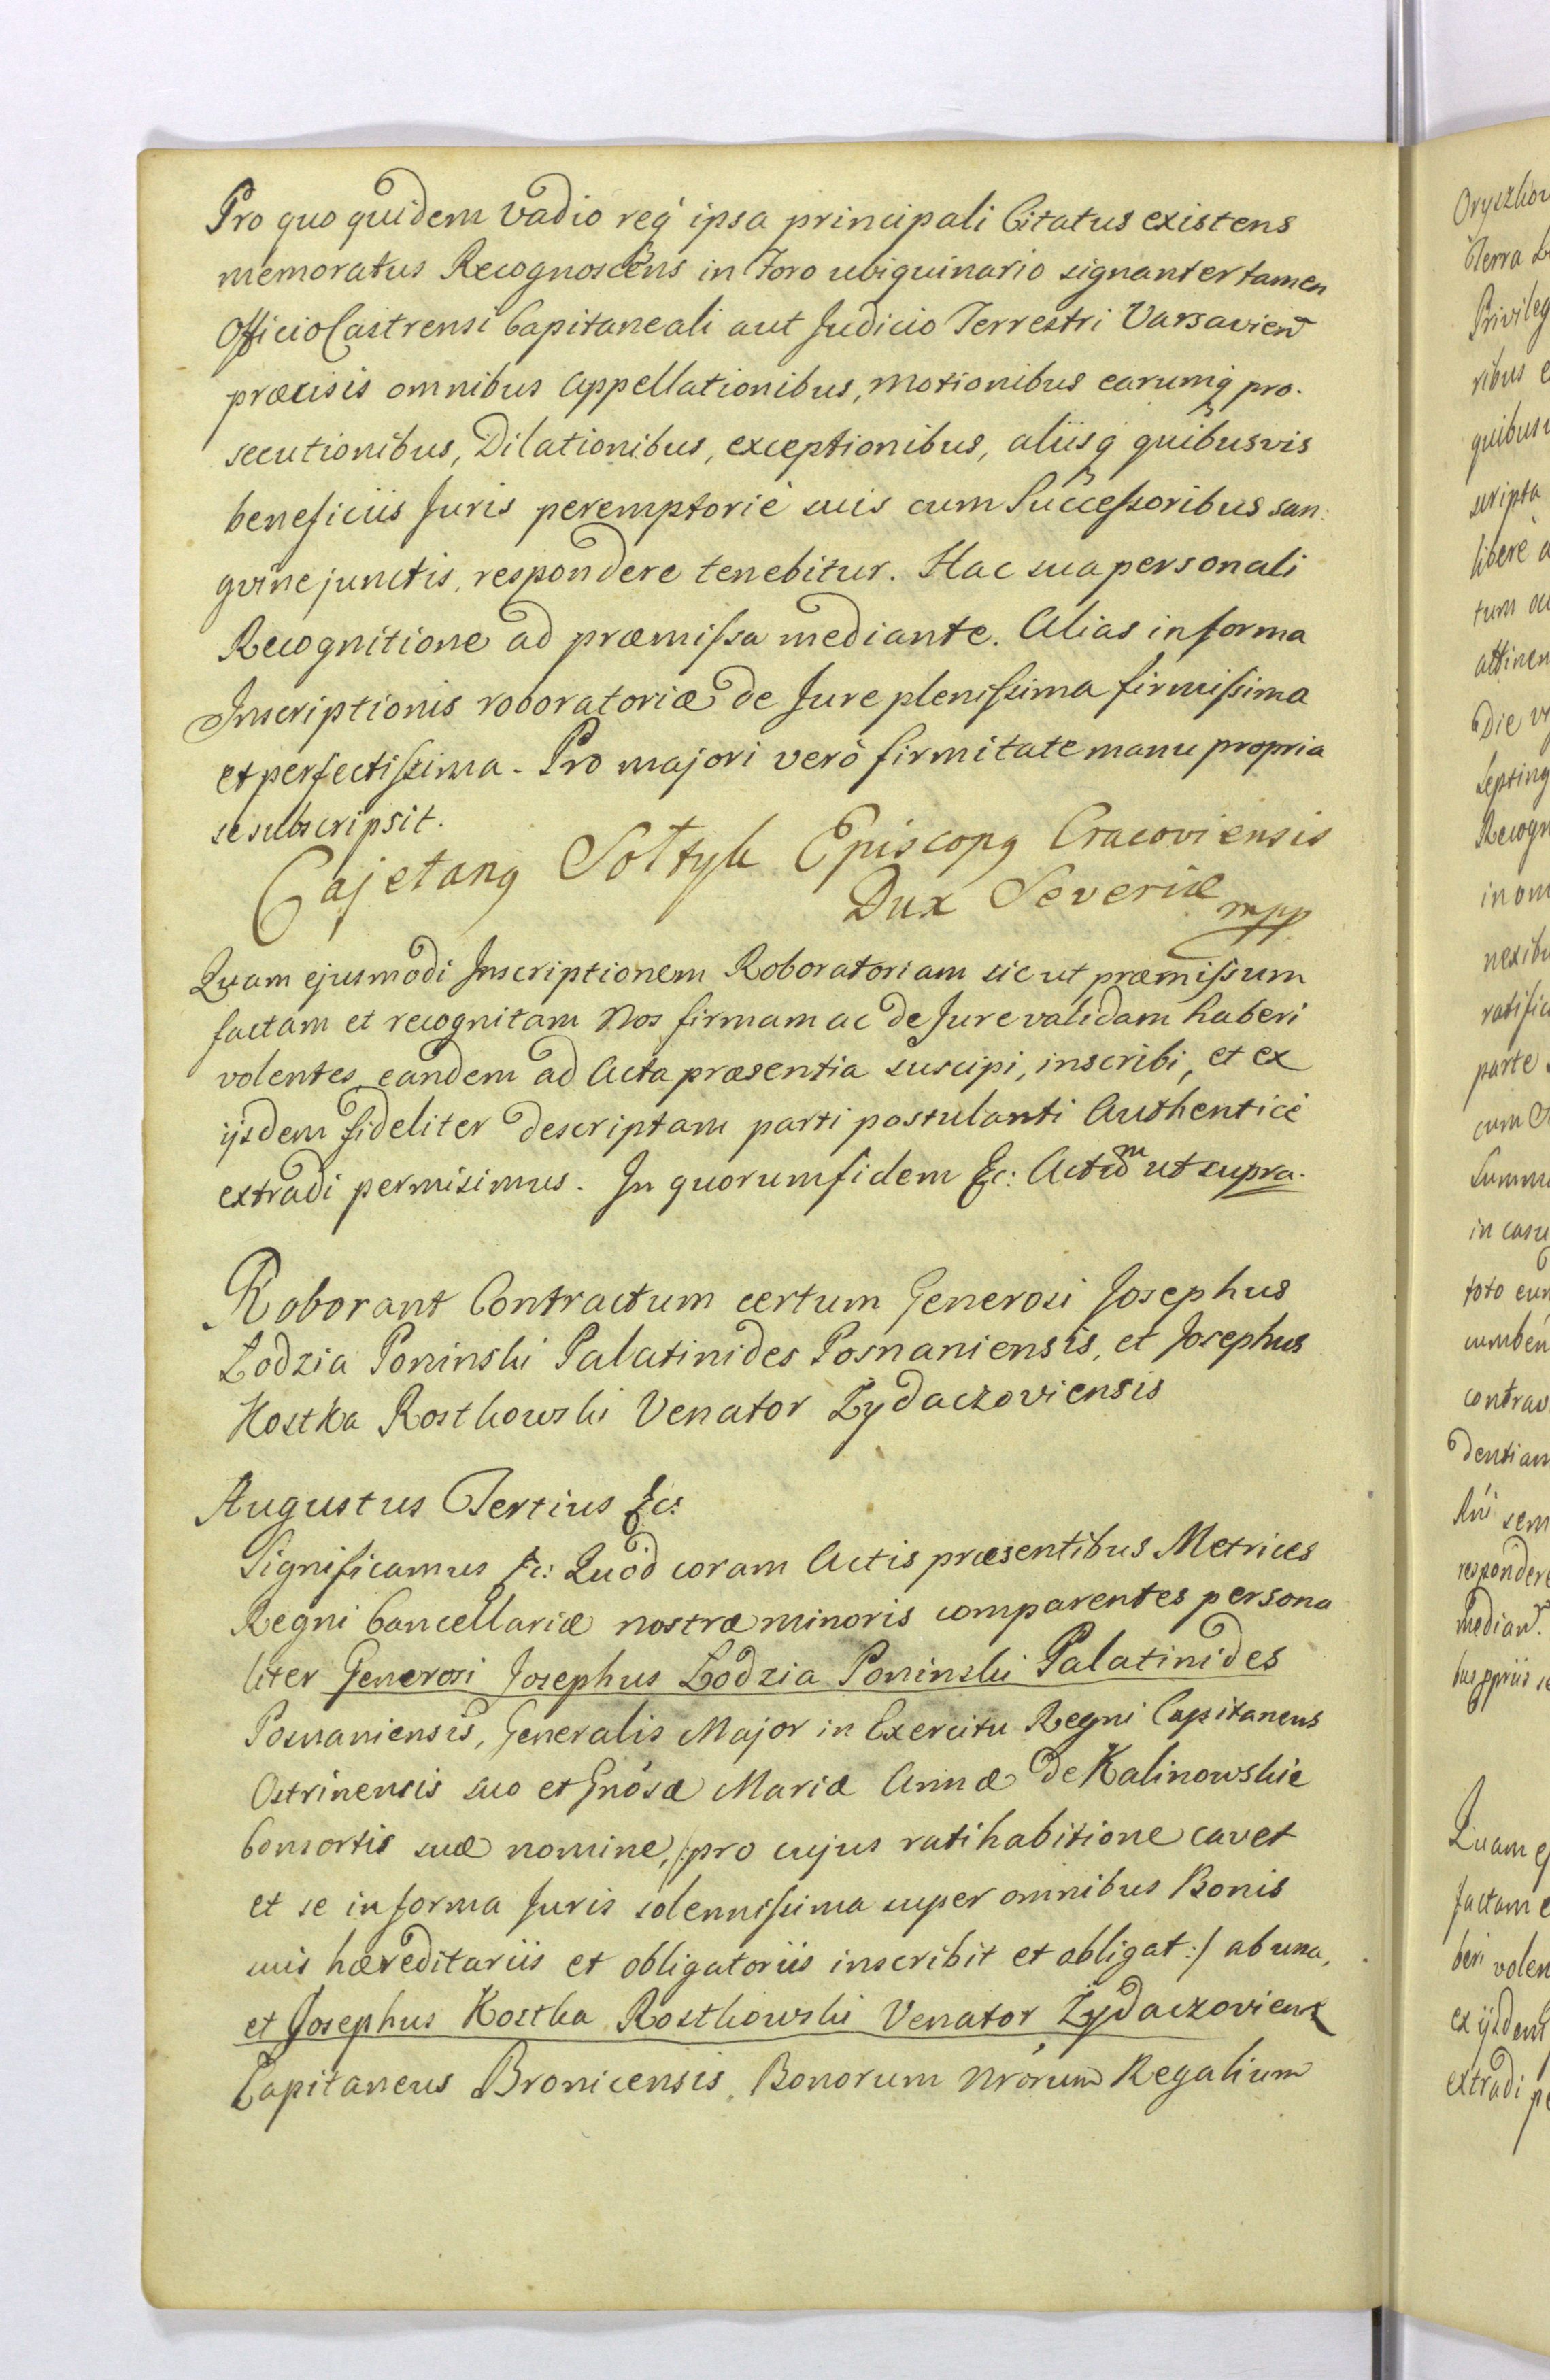 Pro quo quidem vadio req ipsa principali Citatus existens
memoratus Recognoscens in Foro ubiquinario signanter tamen
Officio Castrensi Capitaneali aut Judicio Terrestri Varsavien
præcisis omnibus Appellationibus, Motionibus earumq pro-
secutionibus, Dilationibus, exceptionibus, aliisq quibusvis
beneficiis Juris peremptoriè suis cum Successoribus san:
gvine junctis, respondere tenebitur. Hac sua personali
Recognitione ad præmissa mediante. Alias in forma
Inscriptionis roboratoriæ de Jure plenissima firmissima
et perfectissima. Pro majori verò firmitate manu propria
se subscripsit.
Cajetang Sołtyk Episcopg Cracoviensis
Dux Severiæ mpp
Quam ejusmodi Inscriptionem Roboratoriam sic ut præmissum
factam et recognitam Nos firmam ac de Jure validam haberi
volentes eandem ad Acta præsentia suscipi, inscribi, et ex
ijsdem fideliter descriptam parti postulanti Authenticè
extradi permisimus. In quorum fidem &c: Actum ut supra.
Roborant Contractum certum Generosi Josephus
Łodzia Poninski Palatinides Posnaniensis, et Josephus
Kostka Rostkowski Venator Zydaczoviensis
Augustus Tertius &c:
Significamus &c: Quòd coram Actis præsentibus Metrices
Regni Cancellariæ nostræ minoris comparentes persona
liter Generosi Josephus Łodzia Poninski Palatinides
Posnaniensis, Generalis Major in Exercitu Regni Capitaneus
Ostrinensis suo et Gnosæ Mariæ Annæ de Kalinowskie
Consortis suæ nomine, /:pro cujus ratihabitione cavet
et se in forma Juris solennissima super omnibus Bonis
suis hæreditariis et obligatoriis inscribit et obligat:/ ab una,
et Josephus Kostka Rostkowski Venator Zydaczoviens
Capitaneus Bronicensis, Bonorum Nrorum Regalium